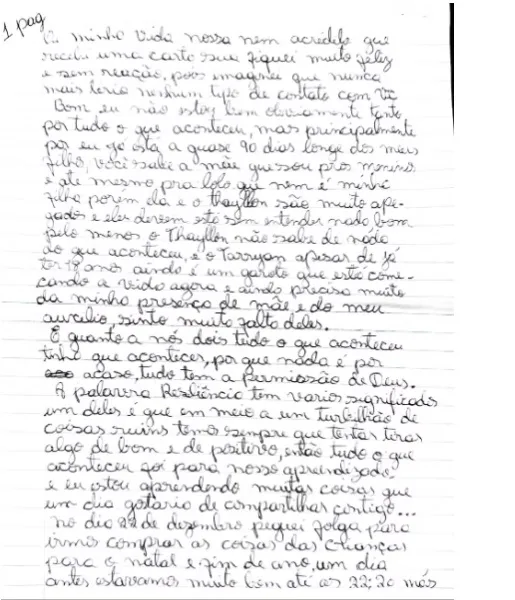 1 pag
Oi minha vida nossa nem acredito que
recebi uma carta sua fiquei muito feliz
e sem reação, pois imaginei que nunca
mais teria nenhum tipo de contato com vc
Bom eu não estou bem obviamente tanto
por tudo o que aconteceu, mas principalmente
por eu já está a quase 90 dias longe dos meus
filho, você sabe a mãe que sou pros meninos
e até mesmo pra que nem é minha
filha porém ela e o Thayllon são muito ape-
gados e eles devem está sem entender nada bom
pelo menos o Thayllon não sabe de nada
do que aconteceu, e o Tarryan apesar de já
ter 18 anos ainda é um garoto que está come-
cando a vida agora e ainda precisa muito
da minha presença de mãe e do meu
auxelio, sinto muito falta deles.
E quanto a nós dois tudo o que aconteceu
tinha que acontecer, por que nada é por
acaso, tudo tem a permissão de Deus.
A palavra Resiliência tem varios significados
um deles é que em meio a um turbilhão de
coisas ruins temos sempre que tentar tirar
algo de bom e de positivo, então tudo o que
aconteceu foi para nosso aprendizado
e eu estou aprendendo muitas coisas que
um dia gotaria de compartilhar contigo...
no dia 22 de dezembro peguei folga para
irmos comprar as coisas das crianças
para o natal e fim de ano, um dia
antes estavamos muito bem até as 22:20 mas